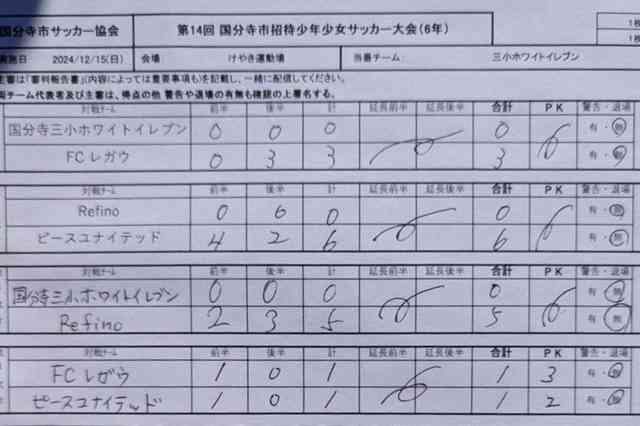 国分寺市サッカー協会 第14回 国分寺市招待少年少女サッカー大会(6年)
実施日 2024/12/15(日) 会場: けやき運動場 当番チーム: 三小ホワイトイレブン
主審は「審判報告書」(内容によっては重要事項も)を記載し、一緒に配信してください。
両チーム代表者及び主審は、得点の他 警告や退場の有無も確認の上署名する。
対戦チーム 前半 後半 計 延長前半 延長後半 合計 PK 警告・退場
国分寺三小ホワイトイレブン 0 0 0 0 有・無
FCレガウ 0 3 3 3 有・無
対戦チーム 前半 後半 計 延長前半 延長後半 合計 PK 警告・退場
Refino 0 0 0 0 有・無
ピースユナイテッド 4 2 6 6 有・無
対戦チーム 前半 後半 計 延長前半 延長後半 合計 PK 警告・退場
国分寺三小ホワイトイレブン 0 0 0 0 有・無
Refino 2 3 5 5 有・無
対戦チーム 前半 後半 計 延長前半 延長後半 合計 PK 警告・退場
FCレガウ 1 0 1 1 3 有・無
ピースユナイテッド 1 0 1 1 2 有・無